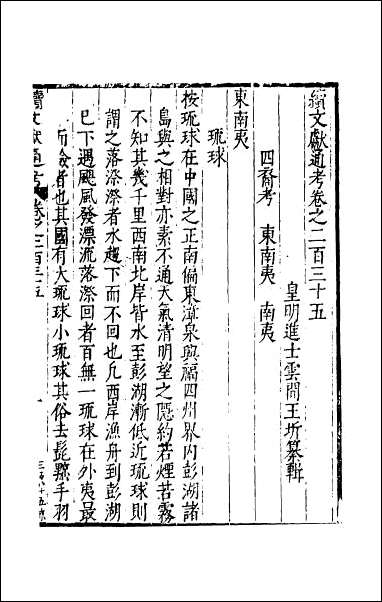 續文獻通考卷之二百三十五
皇明進士雲間王圻纂輯
四裔考　東南夷　南夷
東南夷
琉球
按琉球在中國之正南偏東漳泉與福四州界内彭湖諸
島與之相對亦素不通天氣清明望之隱約若煙若霧
不知其幾千里西南北岸皆水至彭湖漸低近琉球則
謂之落漈漈者水趨下而不回也凡西岸漁舟到彭湖
巳下遇颶風發漂流落漈回者百無一琉球在外夷最
而險者也其國有大琉球小琉球其俗去髭黥手羽
續文獻通考 卷之二百三十五 一